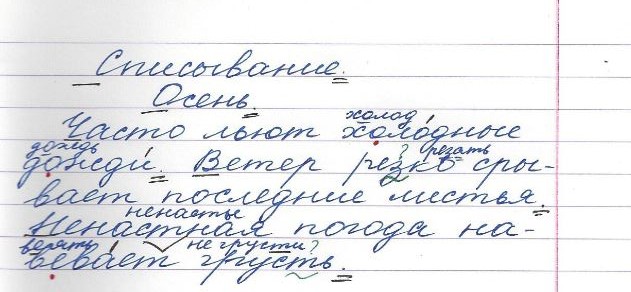 Списывание.
Осень.
холод
Часто льют холодные
дождь ? резать
дожди. Ветер резко сры-
вает последние листья.
ненастье
Ненастная погода на-
не грусти?
вевает грусть.